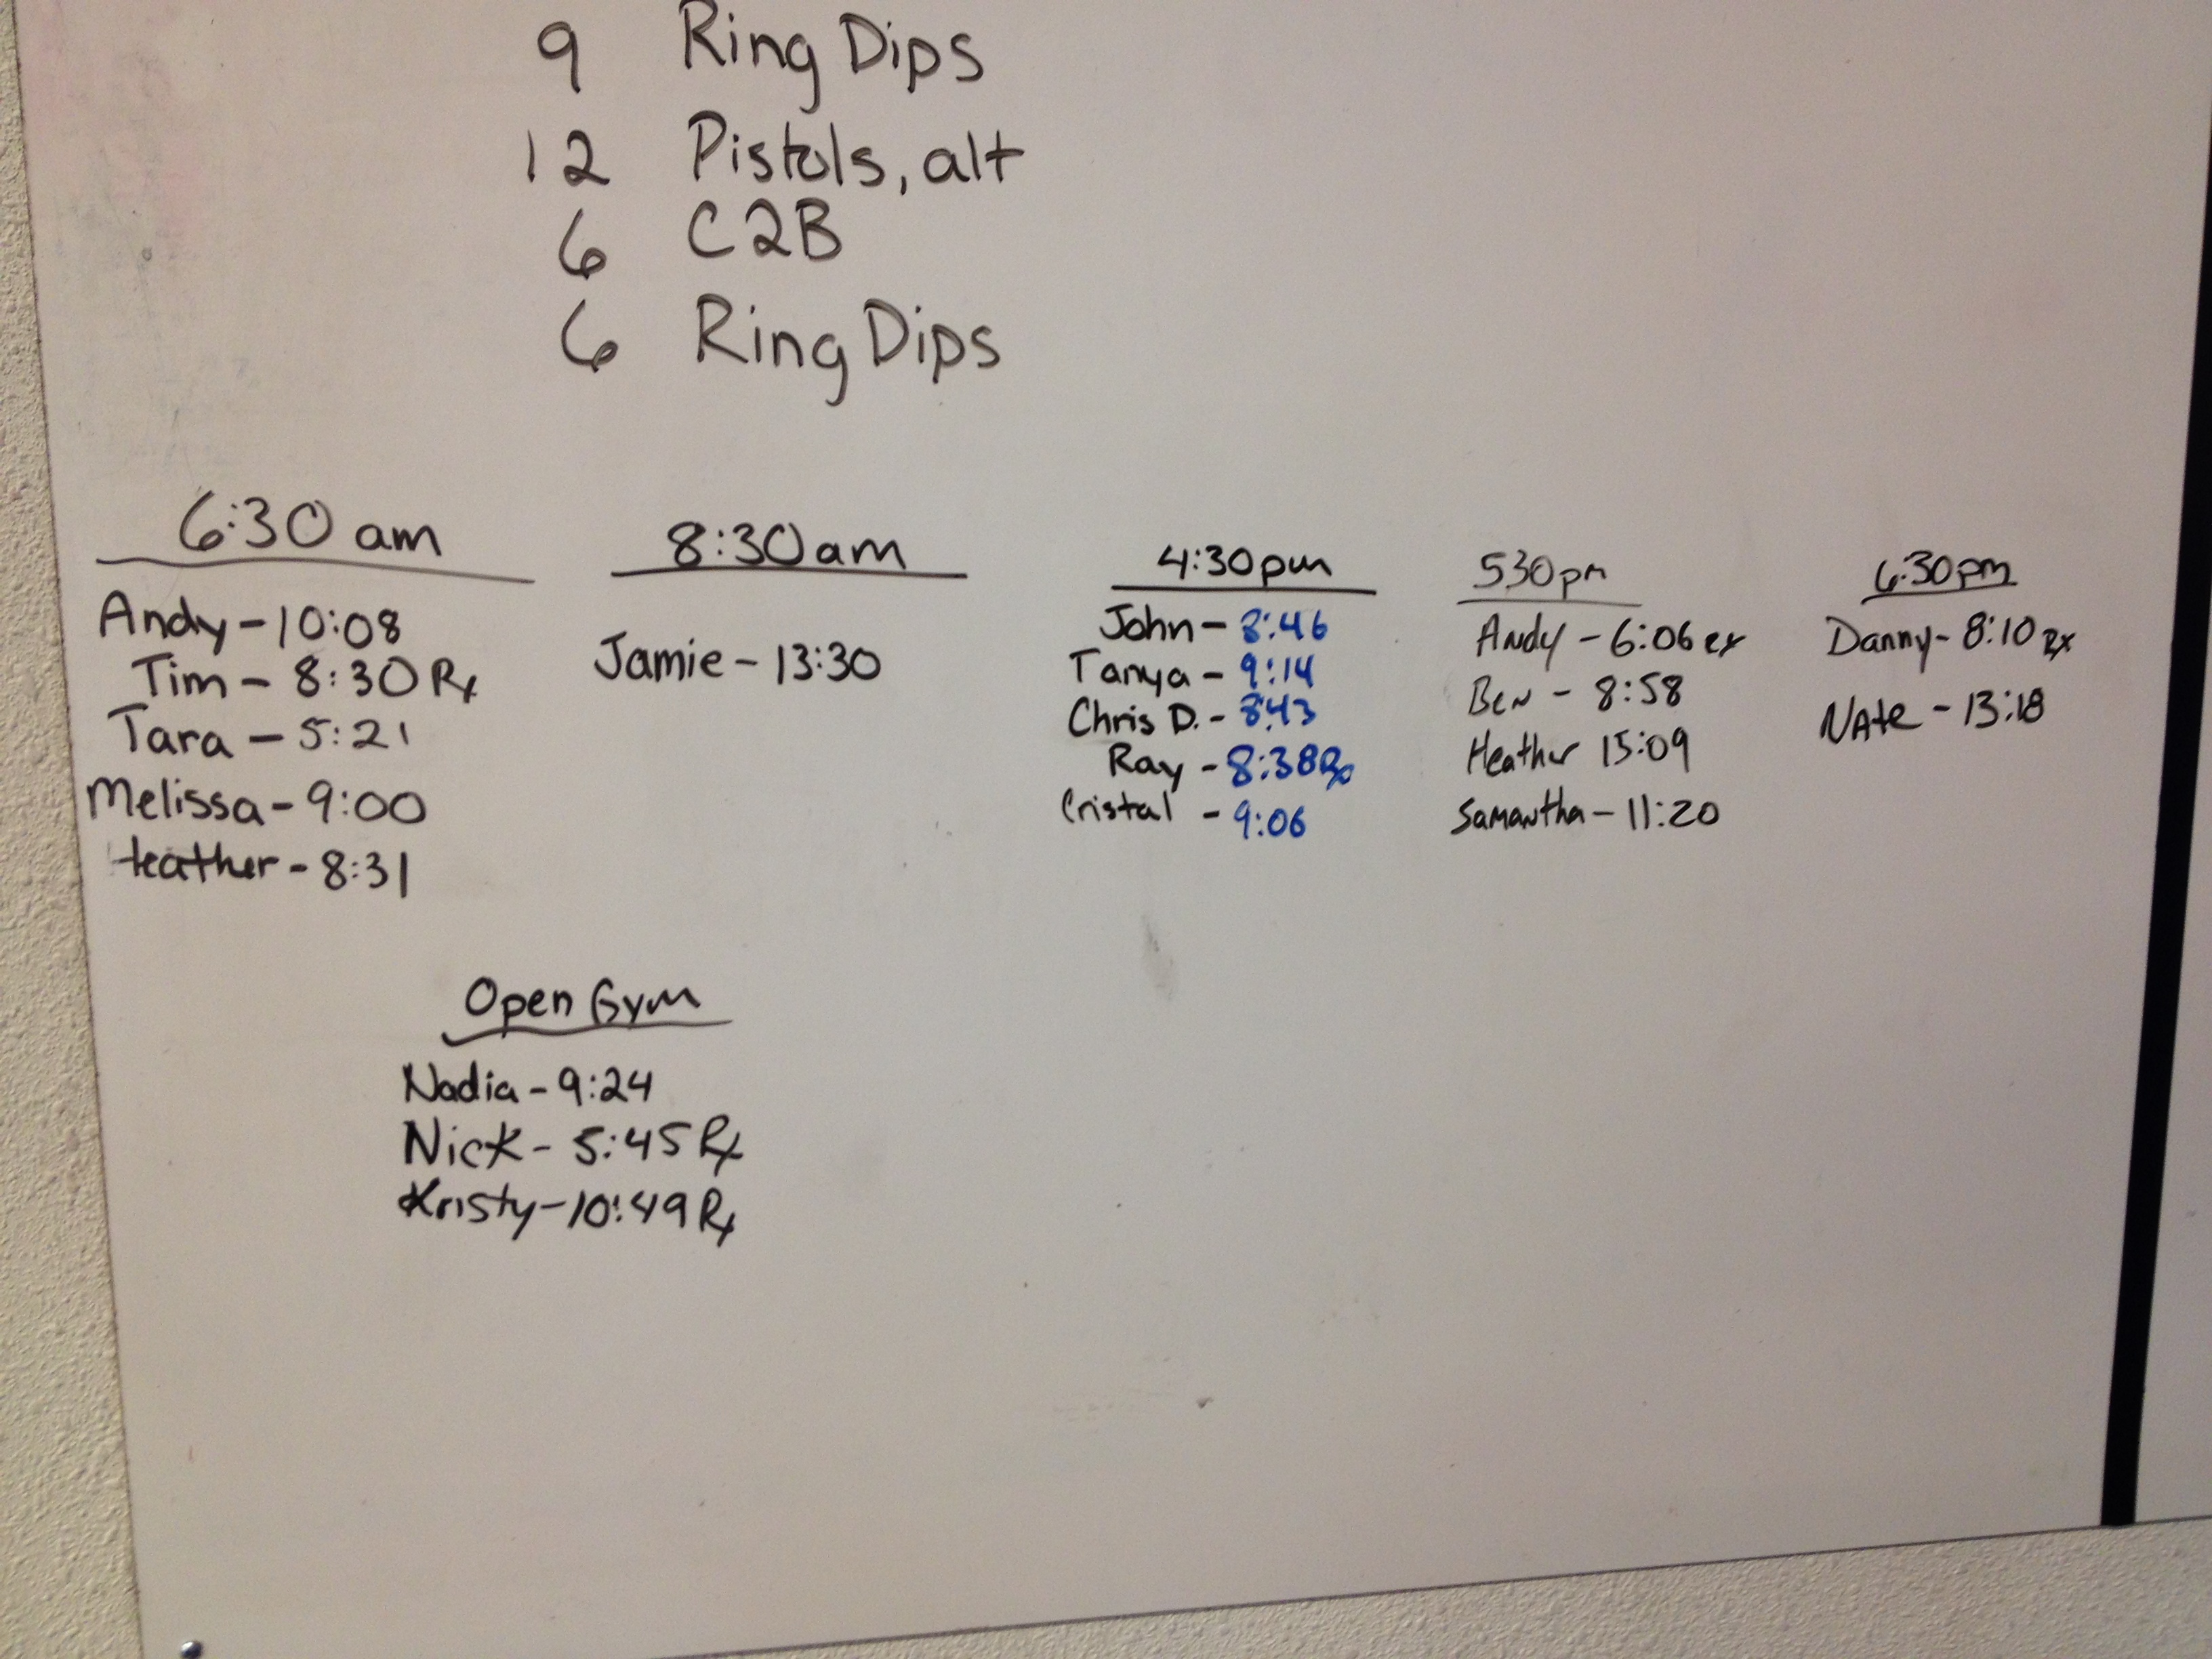 9 Ring Dips
12 Pistols, alt
6 C2B
6 Ring Dips
6:30 am
Andy - 10:08
Tim - 8:30 Rx
Tara - 5:21
Melissa - 9:00
Heather - 8:31
8:30 am
Jamie - 13:30
4:30 pm
John - 8:46
Tanya - 9:14
Chris D. - 8:43
Ray - 8:38 Rx
Cristal - 9:06
530 pm
Andy - 6:06 rx
Ben - 8:58
Heather 15:09
Samantha - 11:20
6:30 pm
Danny - 8:10 Rx
Nate - 13:18
Open Gym
Nadia - 9:24
Nick - 5:45 Rx
Kristy - 10:49 Rx